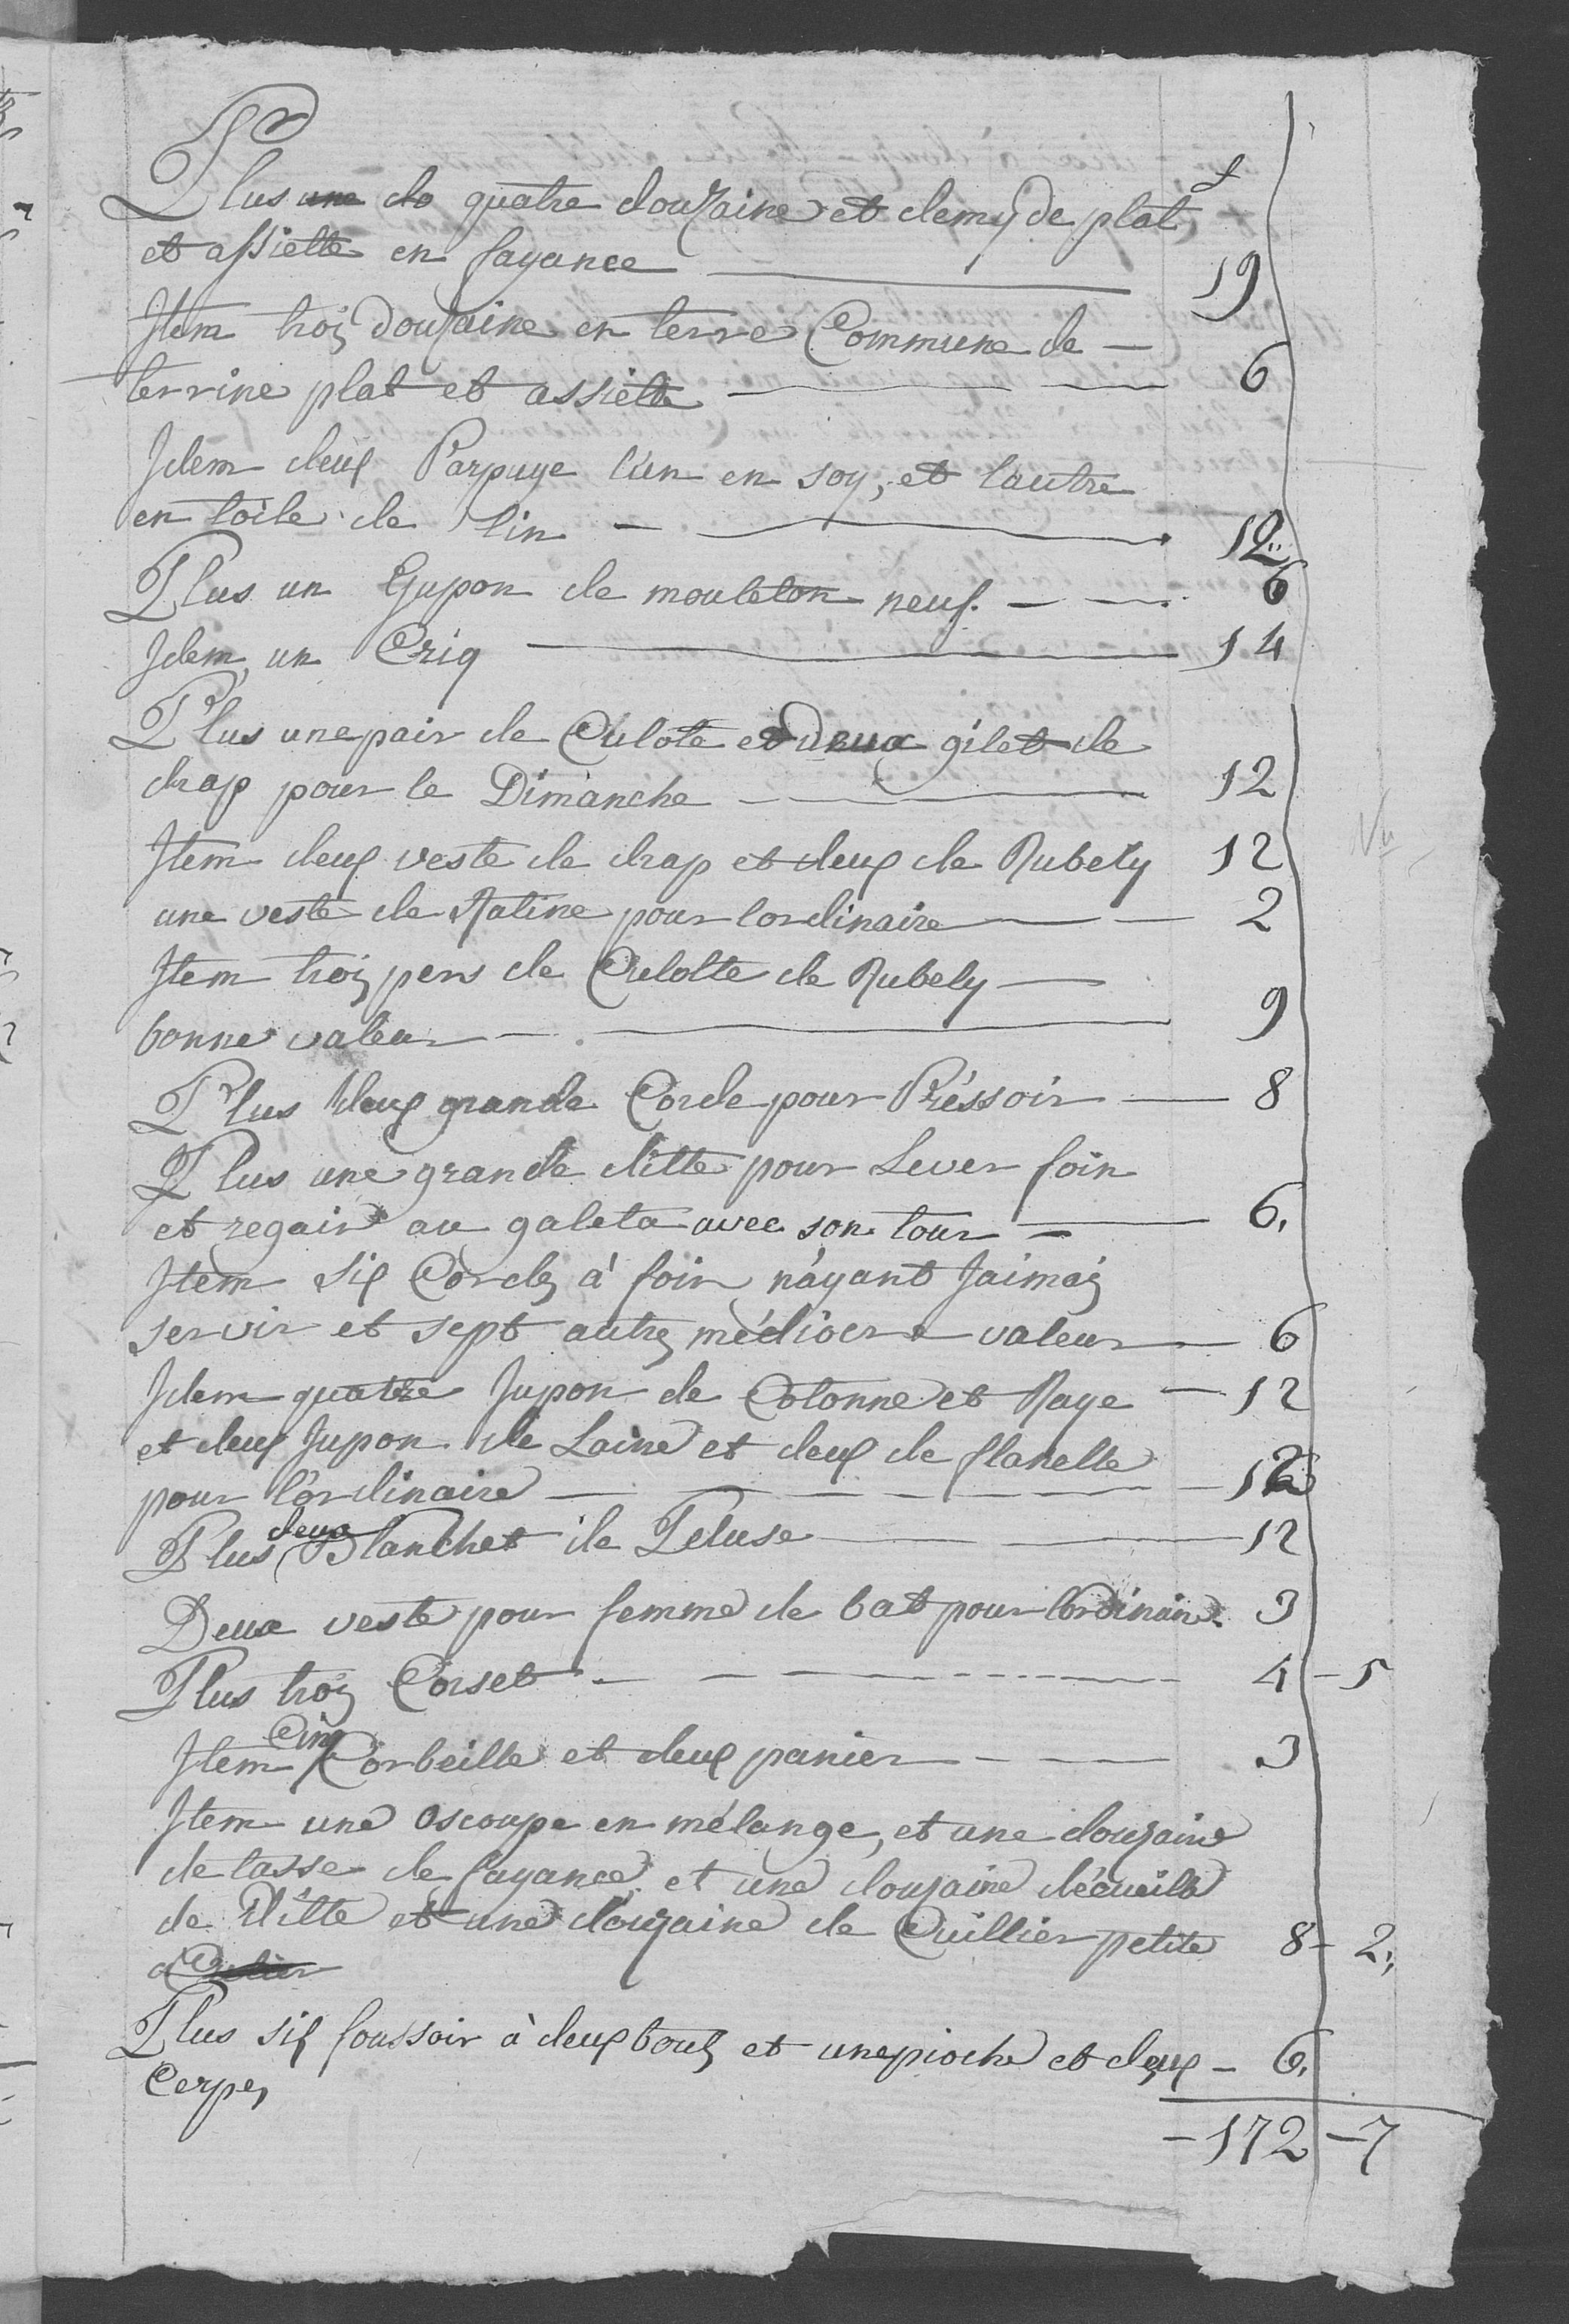 Plus une do quatre douzaine et demy de plat
et assiette en fayance — 19
Item troiz douzaine en terre Commune de —
terrine plat et assiette — 6
Idem deux Parpuye l'un en soy, et lautre
en toile de lin — 12
Plus un Gjupon de mouleton neuf. — 6
Idem, un Criq — 14
Plus une pair de Culote et deux gilet de
drap pour le Dimanche — 12
Item deux veste de drap et deux de Rubely 12
une veste de Ratine pour lordinaire — 2
Item troiz pers de Culotte de Rubely —
bonne valeur — 9
Plus deux grande Corde pour Préssoir — 8
Plus une grande ditte pour Lever foin
et regain au galeta avec son tour — 6,
Item six Cordz à foin n'ayant Jaimaiz
servir et sept autrz médiocre valeur — 6
Idem quatre Jupon de Cotonne et Raye — 12
et deux Jupon de Laine et deux de flanelle
pour l'ordinaire — 12
Plus deux Blanchet de Peluse — 12
Deux veste pour femme de bat pour lordinair. 3
Plus troiz Corset — 4 - 5
Item Cinq Corbeille et deux panier — 3
Item une oscoupe en mélange, et une douzaine
de tasse de fayance et une douzaine décueille
de Ditte et une douzaine de Cuillier petite 8 - 2,
Plus six foussoir à deux boutz et une pioche et deux — 6,
Cerpe,
— 172 — 7
Vu